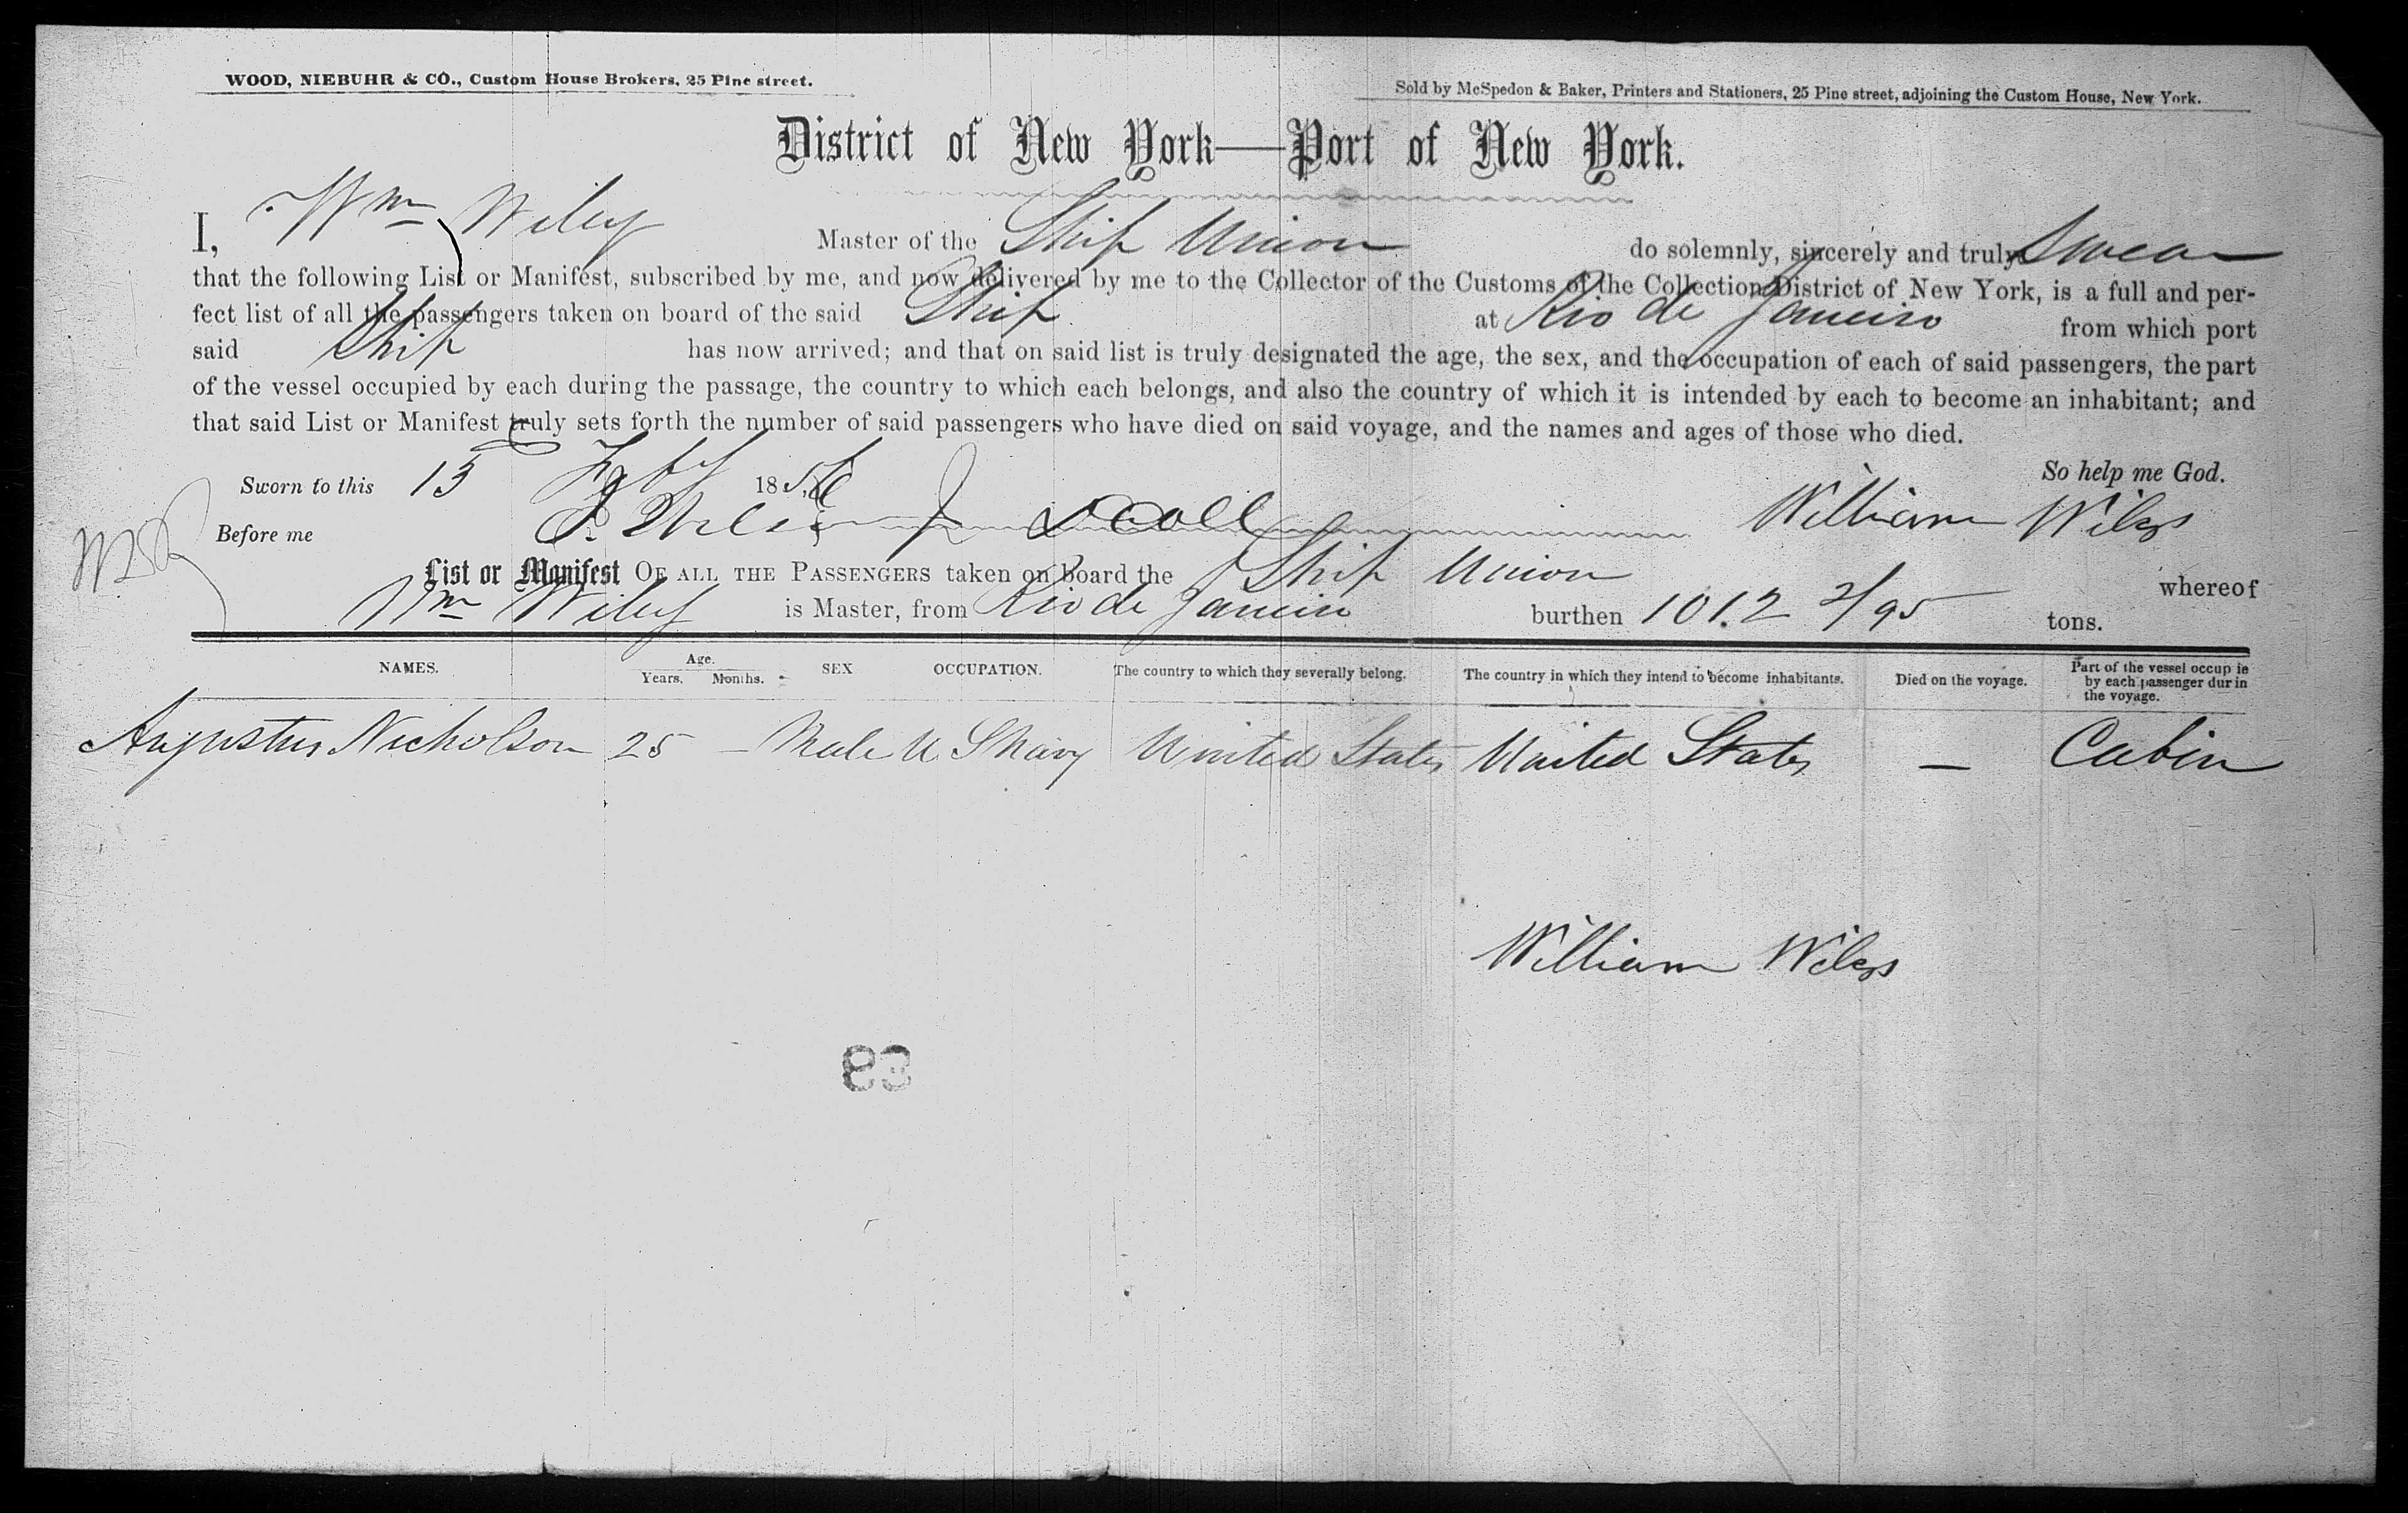 WOOD, NIEBUHR & CO., Custom House Brokers, 25 Pine street.
Sold by McSpedon & Baker, Printers and Stationers, 25 Pine street, adjoining the Custom House, New York.
District of New York—Port of New York.
I, Wm Wiley Master of the Ship Union do solemnly, sincerely and truly Swear
that the following List or Manifest, subscribed by me, and now delivered by me to the Collector of the Customs of the Collection District of New York, is a full and per-
fect list of all the passengers taken on board of the said Ship at Rio de Janeiro from which port
said Ship has now arrived; and that on said list is truly designated the age, the sex, and the occupation of each of said passengers, the part
of the vessel occupied by each during the passage, the country to which each belongs, and also the country of which it is intended by each to become an inhabitant; and
that said List or Manifest truly sets forth the number of said passengers who have died on said voyage, and the names and ages of those who died.
So help me God.
Sworn to this 15 Feby 1856
Before me William Wiley
List or Manifest OF ALL THE PASSENGERS taken on board the Ship Union whereof
Wm Wiley is Master, from Rio de Janeiro burthen 1012 2/95 tons.
NAMES. Age. Years. Months. SEX OCCUPATION. The country to which they severally belong. The country in which they intend to become inhabitants. Died on the voyage. Part of the vessel occup ie
by each passenger dur in
the voyage.
Augustus Nicholson 25 — Male U S Navy United States United States — Cabin
William Wiley
83